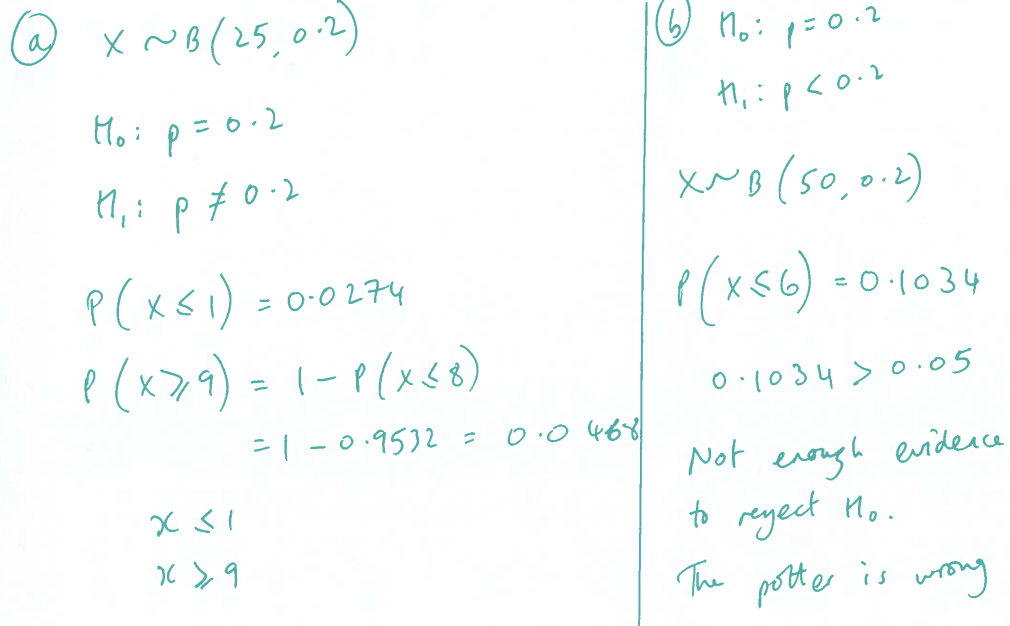 (a) X ~ B(25, 0.2)
H₀: p = 0.2
H₁: p ≠ 0.2
P(X ≤ 1) = 0.0274
P(X ≥ 9) = 1 - P(X ≤ 8)
= 1 - 0.9532 = 0.0468
x ≤ 1
x ≥ 9
(b) H₀: p = 0.2
H₁: p < 0.2
X ~ B(50, 0.2)
P(X ≤ 6) = 0.1034
0.1034 > 0.05
Not enough evidence
to reject H₀.
The potter is wrong